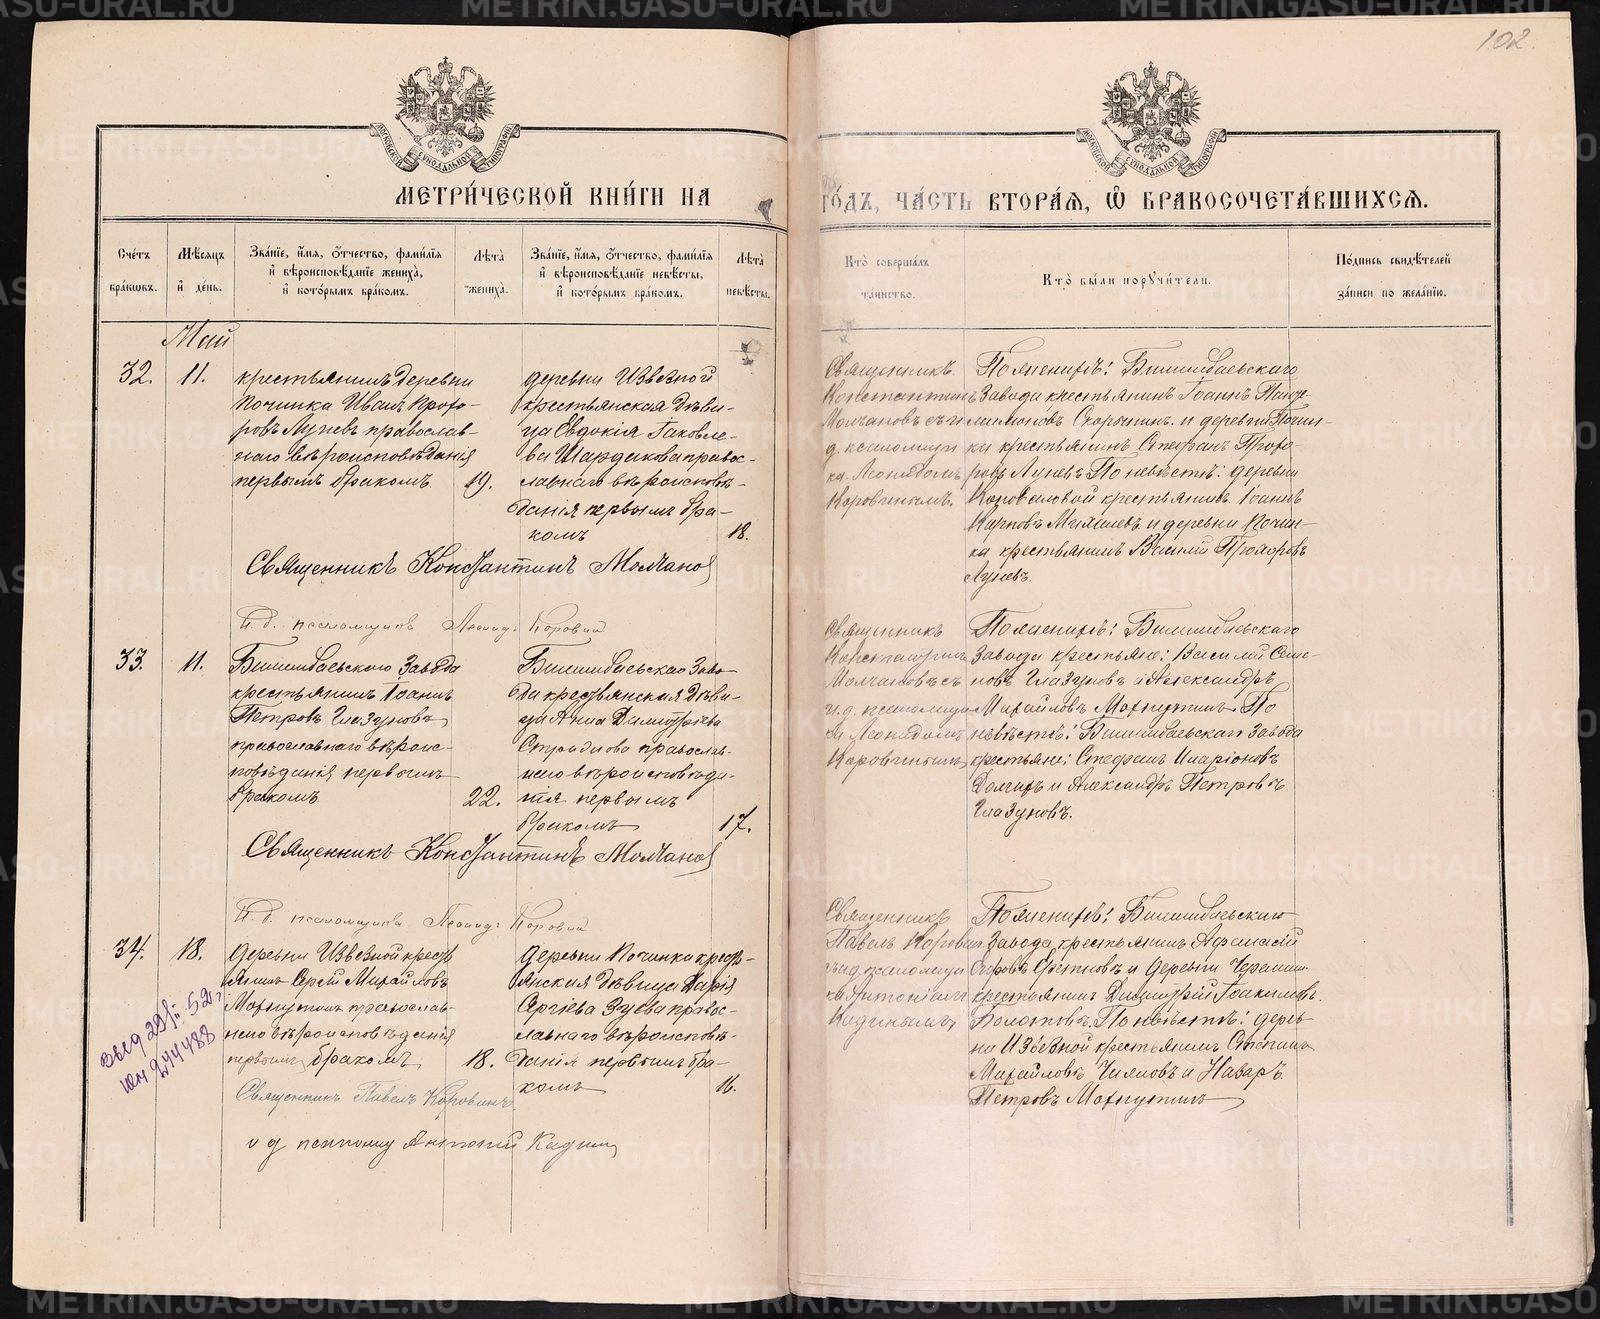 102
МЕТРИ́ЧЕСКОЙ КНИ́ГИ НА
ГО́ДЪ, ЧА́СТЬ ВТОРА́Я, Ѡ҆ БРАКОСОЧЕТА́ВШИХСЯ.
Сче́тъ бра́кѡвъ.
Мѣ́сяцъ и҆ де́нь.
Зва́нїе, и҆́мя, ѻ҆́тчество, фами́лїя и҆ вѣроисповѣ́данїе жениха̀, и҆ кото́рымъ бра́комъ.
Лѣ́та жениха̀.
Зва́нїе, и҆́мя, ѻ҆́тчество, фами́лїя и҆ вѣроисповѣ́данїе невѣ́сты, и҆ кото́рымъ бра́комъ.
Лѣ́та невѣ́сты.
Кто̀ соверша́лъ та́инство.
Кто̀ бы́ли порꙋчи́тели.
По́дпись свидѣ́телей за́писи по жела́нїю.
Май
32.
11.
крестьянинъ деревни
Починка Иванъ Прохо-
ровъ Лузевъ православ-
наго вѣроисповѣданія
первымъ бракомъ.
19.
деревни Извезной
крестьянская дѣви-
ца Евдокія Іаковле-
ва Шардакова правос-
лавнаго вѣроисповѣ-
данія первымъ бра-
комъ
18.
Священникъ
Константинъ
Молчановъ съ и
д. псаломщи
ка Леонидомъ
Коровинымъ.
По женихѣ: Билимбаевскаго
Завода крестьянинъ Іоаннъ
Скорынинъ. и деревни Почин-
ка крестьянинъ Стефанъ Прохо-
ровъ Лузевъ. По невѣстѣ: деревни
Коноваловой крестьянинъ Іоаннъ
Карповъ и деревни Почин-
ка крестьянинъ Василій Прохоровъ
Лузевъ.
Священникъ Константинъ Молчановъ
И. д. псаломщика Леонид. Коровин
33.
11.
Билимбаевскаго Завода
крестьянинъ Іоаннъ
Петровъ Глазуновъ
православнаго вѣроис-
повѣданія первымъ
бракомъ
22.
Билимбаевскаго Заво-
да крестьянская дѣви-
ца Анна Димитріева
православ-
наго вѣроисповѣда-
нія первымъ
бракомъ
17.
Священникъ
Константинъ
Молчановъ съ
и. д. псаломщи
ка Леонидомъ
Коровинымъ
По женихѣ: Билимбаевскаго
Завода крестьяне: Василій Семе-
новъ Глазуновъ и Александръ
Михайловъ Махнутинъ. По
невѣстѣ: Билимбаевскаго Завода
крестьяне: Стефанъ Иларіоновъ
Долгихъ и Александръ Петровъ
Глазуновъ.
Священникъ Константинъ Молчановъ
И. д. псаломщика Леонид. Коровин
34.
18.
деревни Извезной крест
янинъ Сергій Михайловъ
Махнутинъ православ-
наго вѣроисповѣданія
первымъ бракомъ
18.
деревни Починка крест-
янская дѣвица Дарія
Сергіева Зуева правос-
лавнаго вѣроисповѣ-
данія первымъ бра-
комъ
16.
Священникъ
Павелъ Коровин
и д. псаломщи
ка Антоніемъ
Кадинымъ
По женихѣ: Билимбаевскаго
Завода крестьянинъ Афанасій
и деревни Черемши
крестьянинъ Димитрій Іоакимовъ
Болотовъ. По невѣстѣ: дерев-
ни Извезной крестьянинъ Степанъ
Михайловъ Чижовъ и Назаръ
Петровъ Махнутинъ
Священникъ Павелъ Коровинъ
и д псаломщ Антоній Кадин
244488